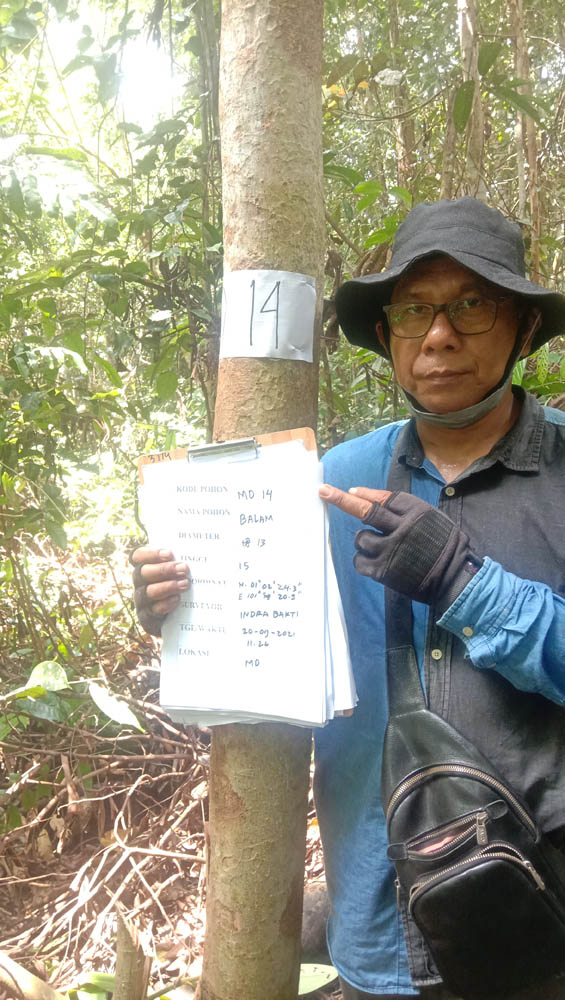 14
KODE POHON MD 14
NAMA POHON BALAM
DIAMETER 13
TINGGI 15
KOORDINAT N. 01° 02' 24.3"
E 101°
SURVEYOR INDRA BAKTI
TGL/WAKTU 20-09-2021
11.26
LOKASI MD